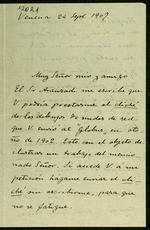 12021
Venecia 24 Sept. 1907
Muy Señor mio y amigo
El Sr Aranzadi me escribe que
V podria prestarme el cliché
de los dibujos de nudos de red,
que V envió al Globus, en oto
ño de 1902. Esto con el objeto de
ilustrar un trabajo del mencio-
nado Señor. Si accede V á mi
peticion hagame enviar el cli
ché sin escribirme, para que
no se fatigue.